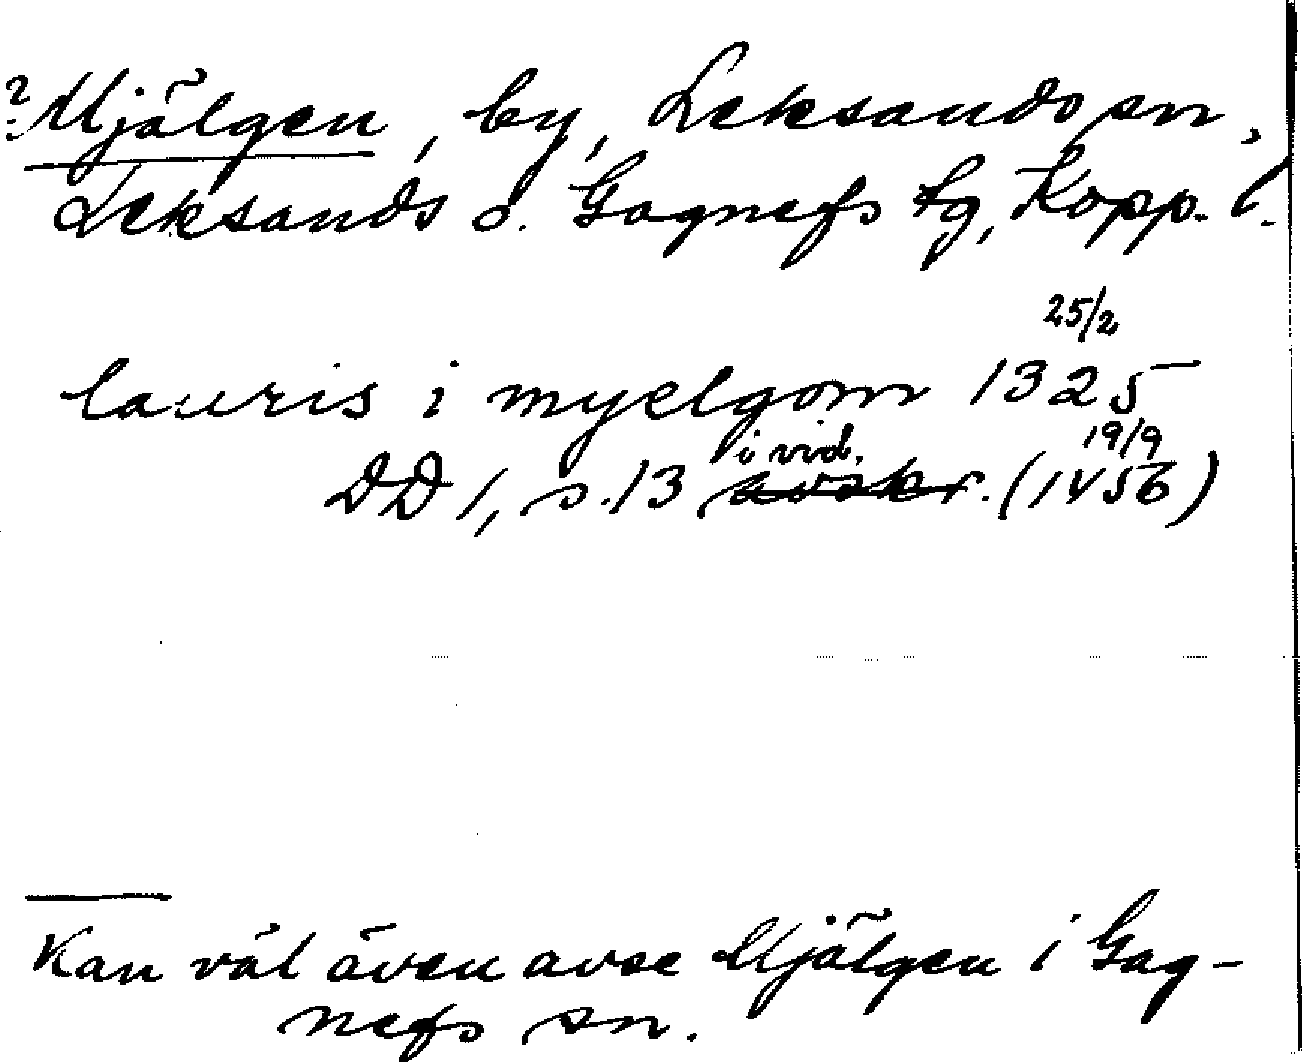 ? Mjälgen, by, Leksands sn,
Leksands o. Gagnefs tg, Kopp. l.
25/2
lauris i myelgom 1325
i vid. 19/9
DD 1, s. 13 avskr. (1456)
Kan väl även avse Mjälgen i Gag-
nefs sn.